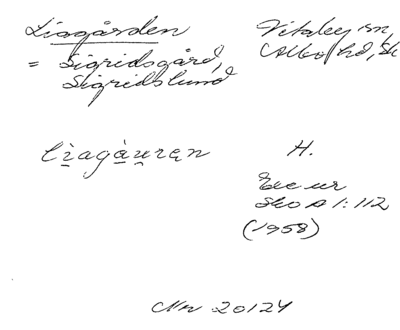 Liagården
= Sigridsgård,
Sigridslund
Vitaby sn,
Albo hd, Sk
lìagàu̯ręn
H.
Exc ur
SkO A 1:112
(1958)
Nr 20124